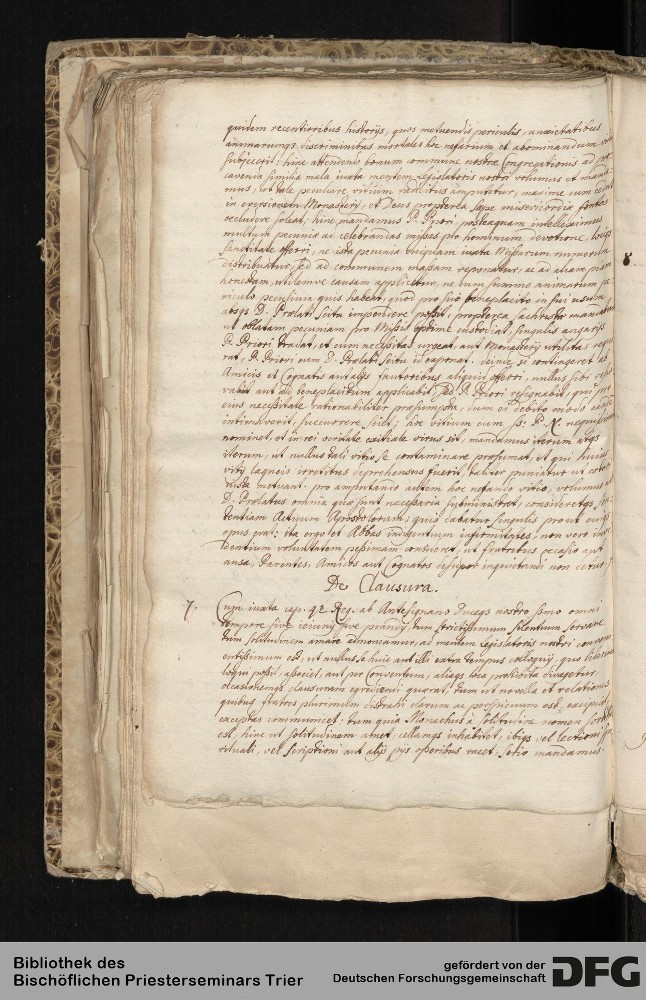 quidem recentioribus historijs, quos metuendis periculis, anxietatibus
animarumqs discriminibus mortales hoc nefarium et abominandum
subjecerit; hinc attendentes bonum commune nostrae Congregationis ad
cavenda similia mala iuxta mentem Legislatoris nostri volumus et manda
mus, ut tale peculiare vitium radicitus amputetur, maxime cum
in eversionem Monasterij, et Deus propterea saepe misericordiae fontes
occludere soleat; hinc mandamus P. Priori, posteaquam intelleximus
multum pecuniae ad celebrandas missas pro hominum devotione loci
sanctitate offerri, ne ista pecunia cuiquam iuxta Missarum numerum
distribuatur, sed ad communem massam reponatur, ac ad aliam piam
honestam, utilemve causam applicetur, ne cum summo animarum pe
riculo peculium quis habeat, quod pro suo beneplacito in sui usum
absqs D. Praelati scitu impendere possit; propterea sachristae
ut oblatam pecuniam pro Missis optime custodiat, singulis angarijs
P. Priori tradat, et cum necessitas urgeat aut Monasterij utilitas
rat, P. Priori cum D. Praelati scitu id exponat. deinde si contingeret ab
Amicis et Cognatis aut alijs fautoribus aliquid offerri, nullus sibi
vabit aut ad beneplacitum applicabit, sed P. Priori resignabit, qui pro
eius necessitate rationabiliter praesumpta, dum ei debito modo
intimaverit, succurrere sciet; hoc vitium cum SS. P. N.
nominet, et in rei veritate exitiale virus sit, mandamus iterum atqs
iterum, ut nullus tali vitio se contaminare praesumat, et qui huius
vitij laqueis irretitus deprehensus fuerit, taliter puniatur ut
inde metuant. pro amputando autem hoc nefando vitio, volumus ut
D. Praelatus omnia quae sunt necessaria subministret, consideretqs
tentiam Actuum Apostolorum, quia dabatur singulis prout cuiqs
opus erat: ita ergo et Abbas indigentium infirmitates, non vero in
dentium voluntatem pessimam contueret, ut fratribus occasio aut
ansa, Parentes, Amicos aut Cognatos desuper inquietandi non detur.
De Clausura.
7. Cum iuxta cap. 42 Reg. ab Antesignano Duceqs nostro ssmo omni
tempore sive ieiunij sive prandij, tum strictissimum silentium servare
tum solitudinem amare admoneamur, ad mentem Legislatoris nostri
entissimum est, ut nullus se huic aut illi extra tempus colloquij, quo
loqui possit, associet, aut per Conventum, aliaqs loca prohibita divagetur
occasionemqs clausuram egrediendi quaerat, tum ut novella et relationes
quibus fratres plurimum distrahi clarum ac perspicuum est, excipiat,
exceptas communicet: tum quia Monachus a solitudine nomen
est, hinc ut solitudinem amet, cellamqs inhabitet, ibiqs vel lectioni
rituali, vel scriptioni aut alijs pijs operibus vacet, serio mandamus.
8
Bibliothek des
Bischöflichen Priesterseminars Trier
gefördert von der
Deutschen Forschungsgemeinschaft
DFG